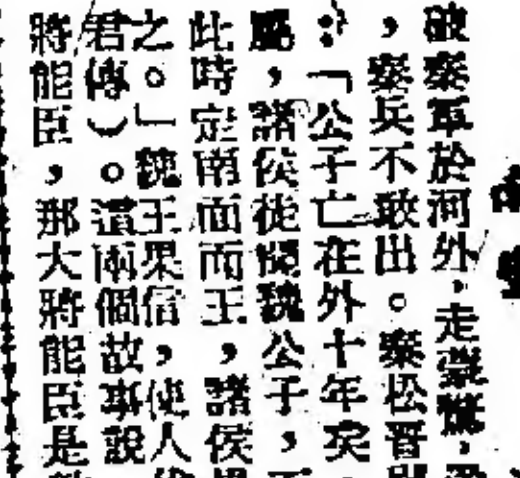 破秦軍於河外，走蒙
，秦兵不敢出。秦松晋
：「公子亡在外十年矣，
屬，諸侯徒聞魏公子，
此時定南面而王，諸侯
之。」魏王果信，使人
君傳）。這兩個故事說
將能臣，那大將能臣是